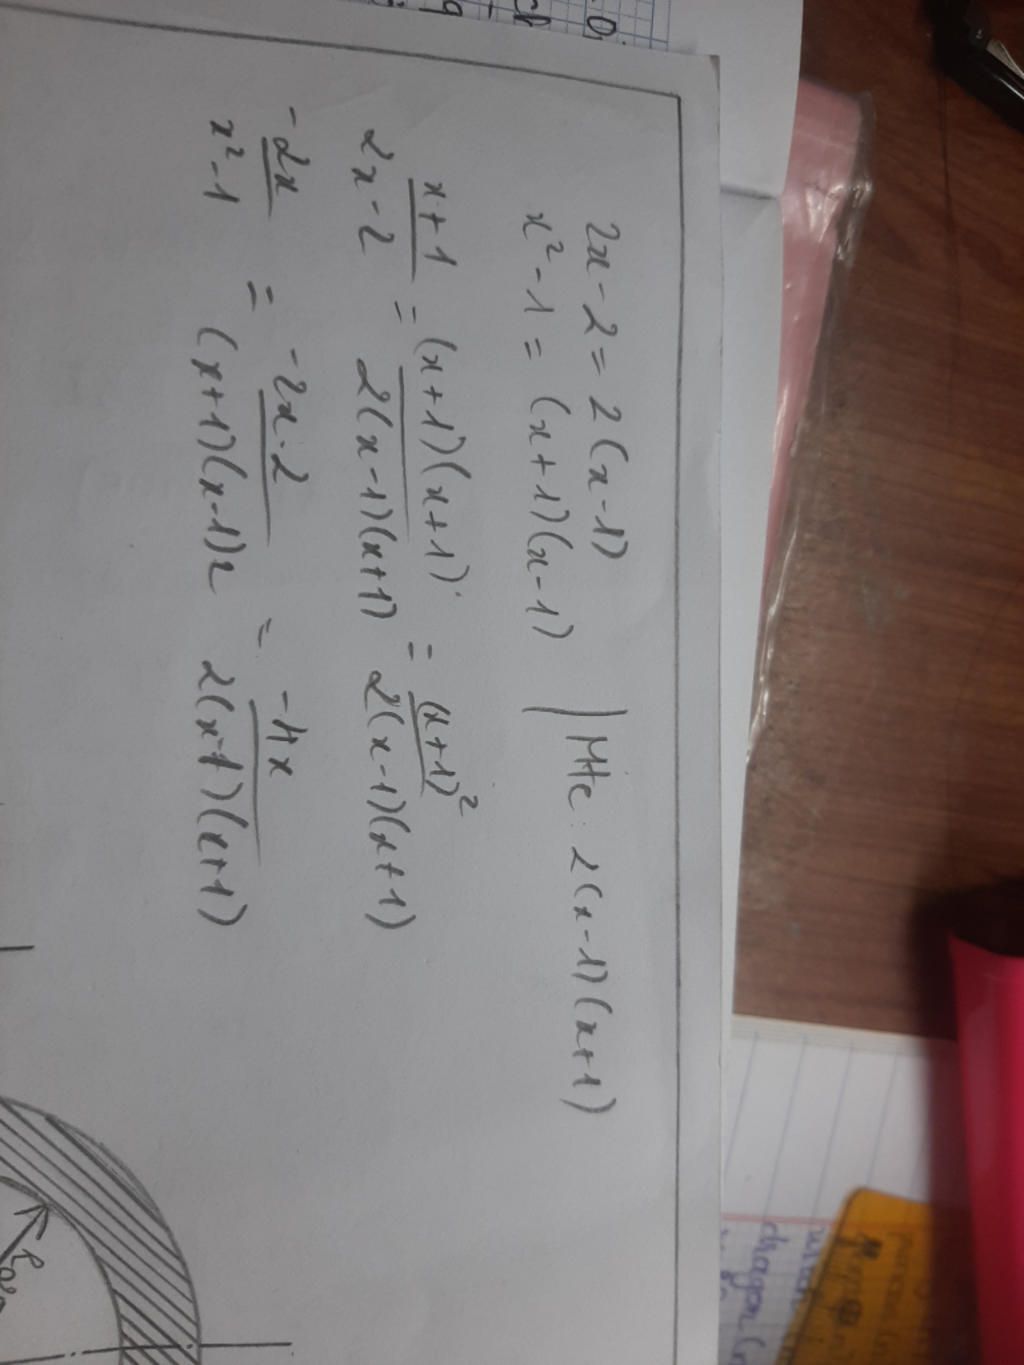 2x - 2 = 2(x-1)
x² - 1 = (x+1)(x-1) | MTC: 2(x-1)(x+1)
x+1 / 2x-2 = (x+1)(x+1) / 2(x-1)(x+1) = (x+1)² / 2(x-1)(x+1)
-2x / x²-1 = -2x·2 / (x+1)(x-1)2 = -4x / 2(x-1)(x+1)